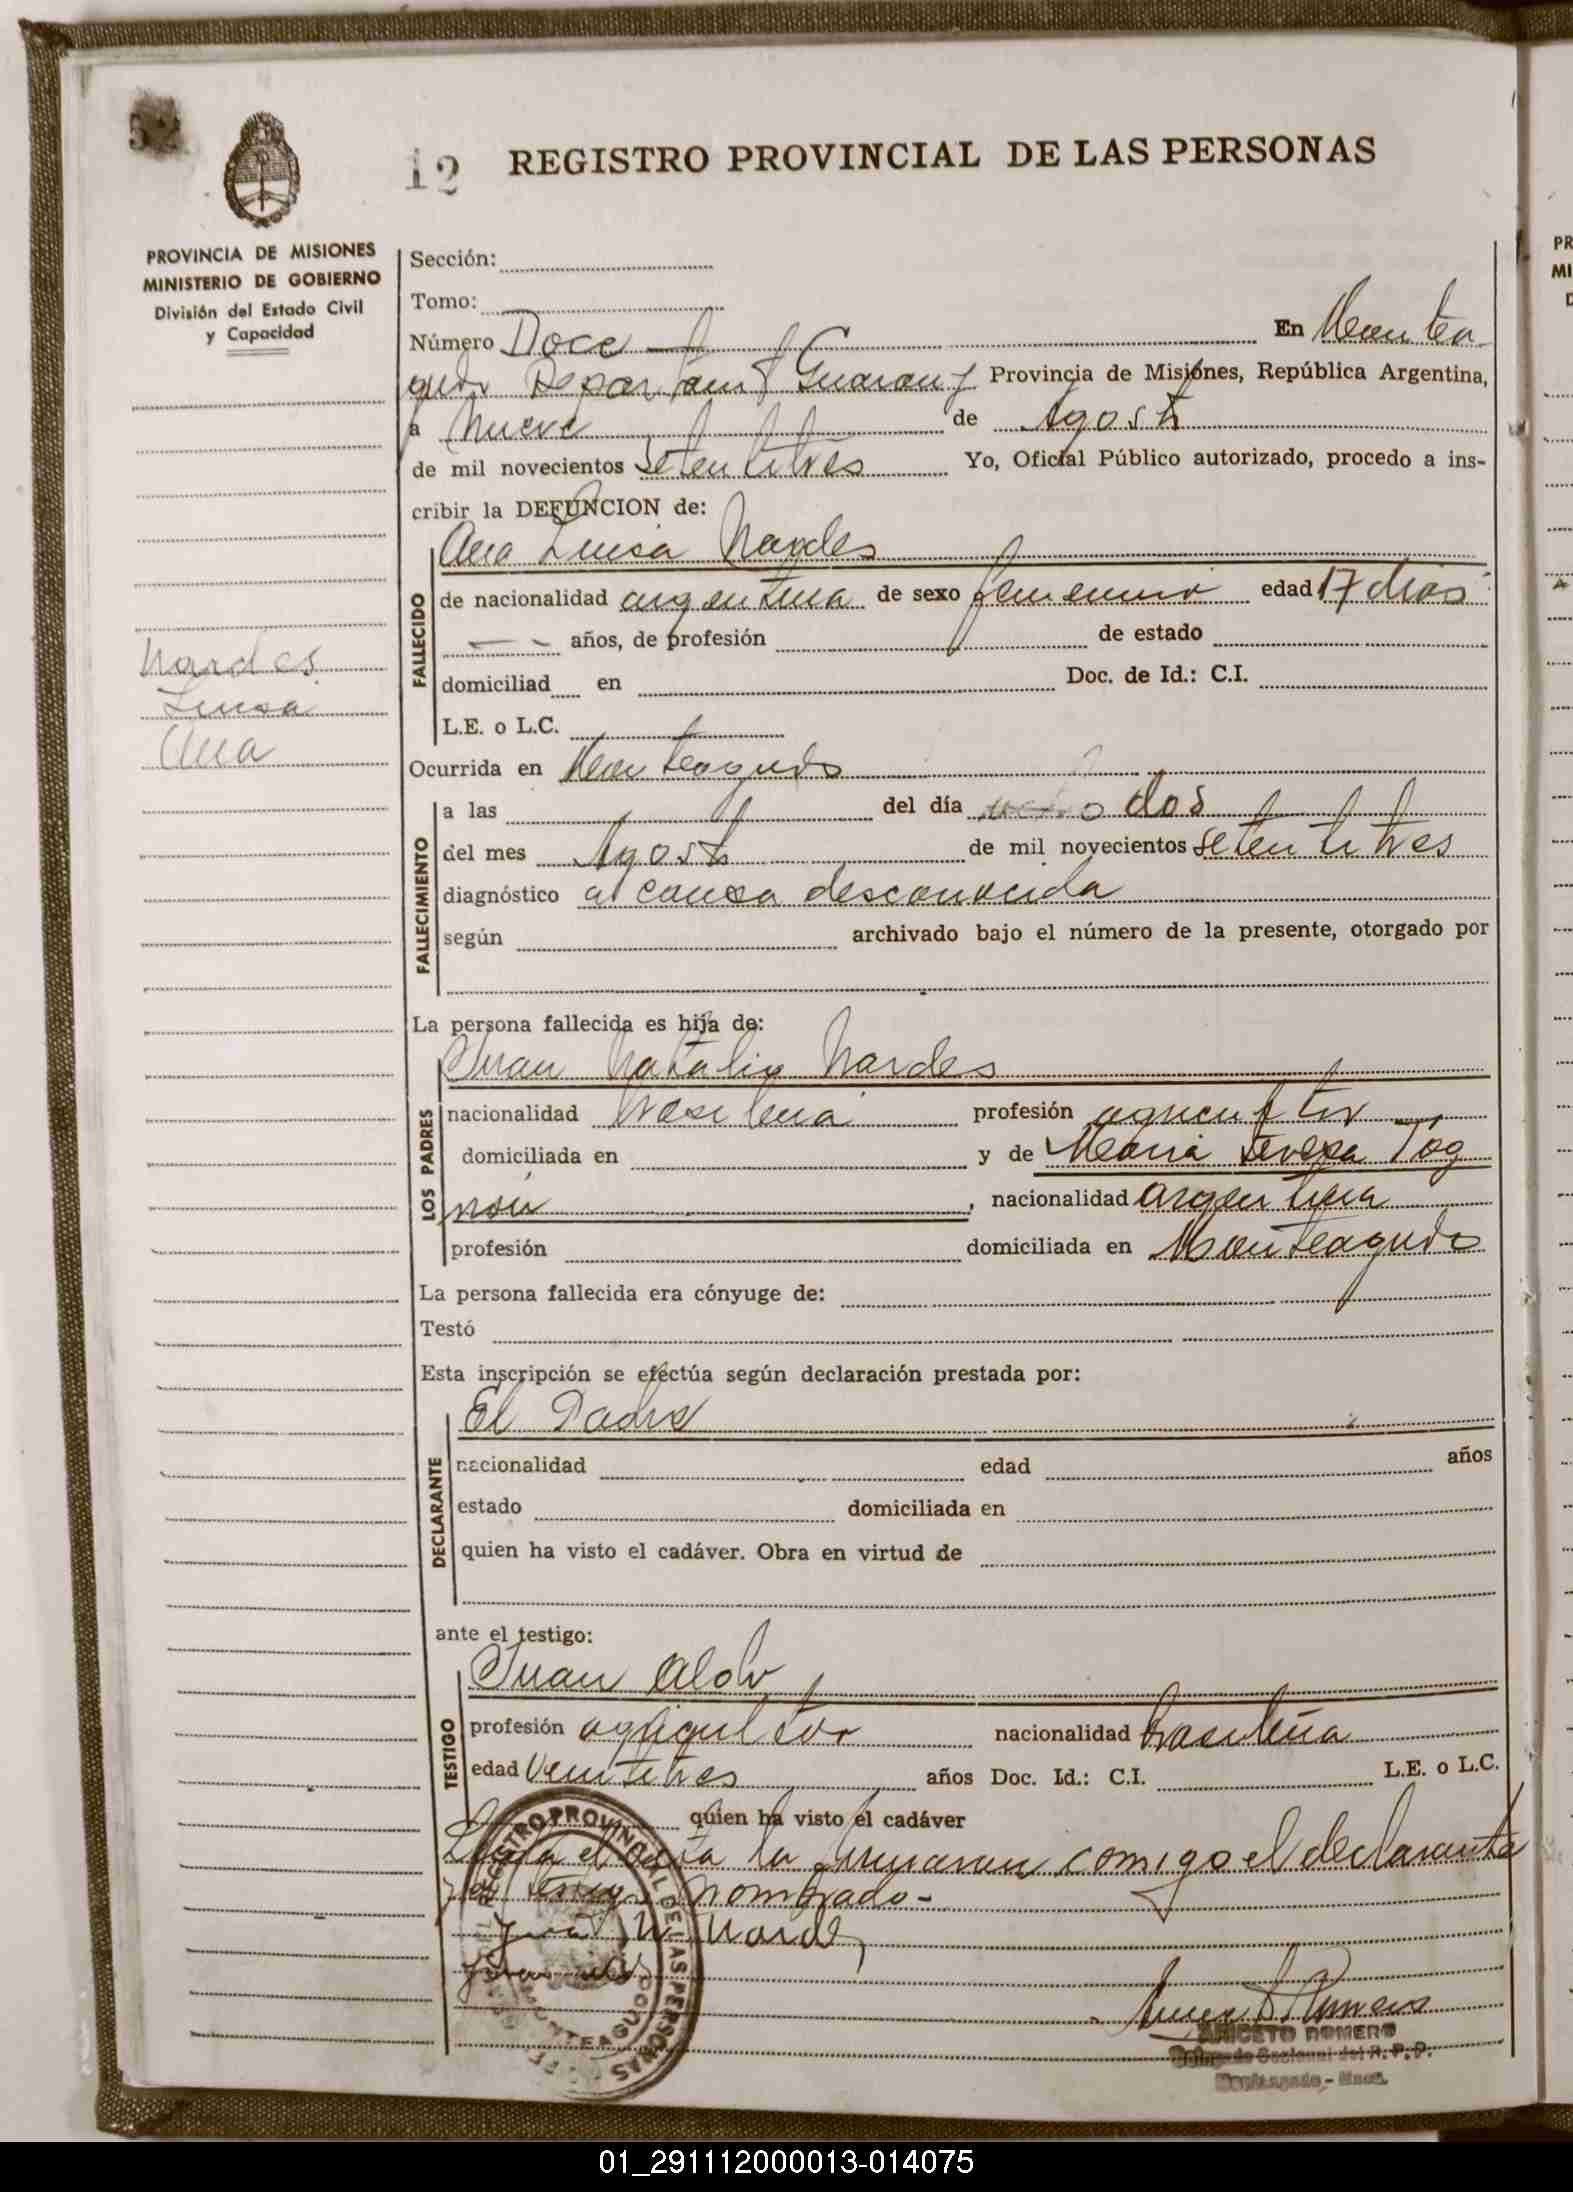 12 REGISTRO PROVINCIAL DE LAS PERSONAS
PROVINCIA DE MISIONES
MINISTERIO DE GOBIERNO
División del Estado Civil
y Capacidad
Nardes
Luisa
Ana
Sección:
Tomo:
Número Doce En Montea
gudo Departamt Guarany Provincia de Misiones, República Argentina,
a Nueve de Agosto
de mil novecientos setentitres Yo, Oficial Público autorizado, procedo a ins-
cribir la DEFUNCION de:
Ana Luisa Nardes
FALLECIDO
de nacionalidad argentina de sexo femenino edad 17 dias
años, de profesión de estado
domiciliad en Doc. de Id.: C.I.
L.E. o L.C.
Ocurrida en Monteagudo
FALLECIMIENTO
a las del día dos
del mes Agosto de mil novecientos setentitres
diagnóstico a causa desconocida
según archivado bajo el número de la presente, otorgado por
La persona fallecida es hija de:
Juan Natalio Nardes
LOS PADRES
nacionalidad brasilena profesión agricultor
domiciliada en y de Maria Teresa Tog
non, nacionalidad argentina
profesión domiciliada en Monteagudo
La persona fallecida era cónyuge de:
Testó
Esta inscripción se efectúa según declaración prestada por:
El Padre
DECLARANTE
nacionalidad edad años
estado domiciliada en
quien ha visto el cadáver. Obra en virtud de
ante el testigo:
Juan
TESTIGO
profesión agricultor nacionalidad brasileña
edad ventitres años Doc. Id.: C.I. L.E. o L.C.
quien ha visto el cadáver
el acta la firmaran comigo el declarante
nombrado-
REGISTRO PROVINCIAL DE LAS PERSONAS
MONTEAGUDO
ANICETO ROMERO
Delegado Seccional del R. P. P.
Monteagudo - Mnes.
01_291112000013-014075